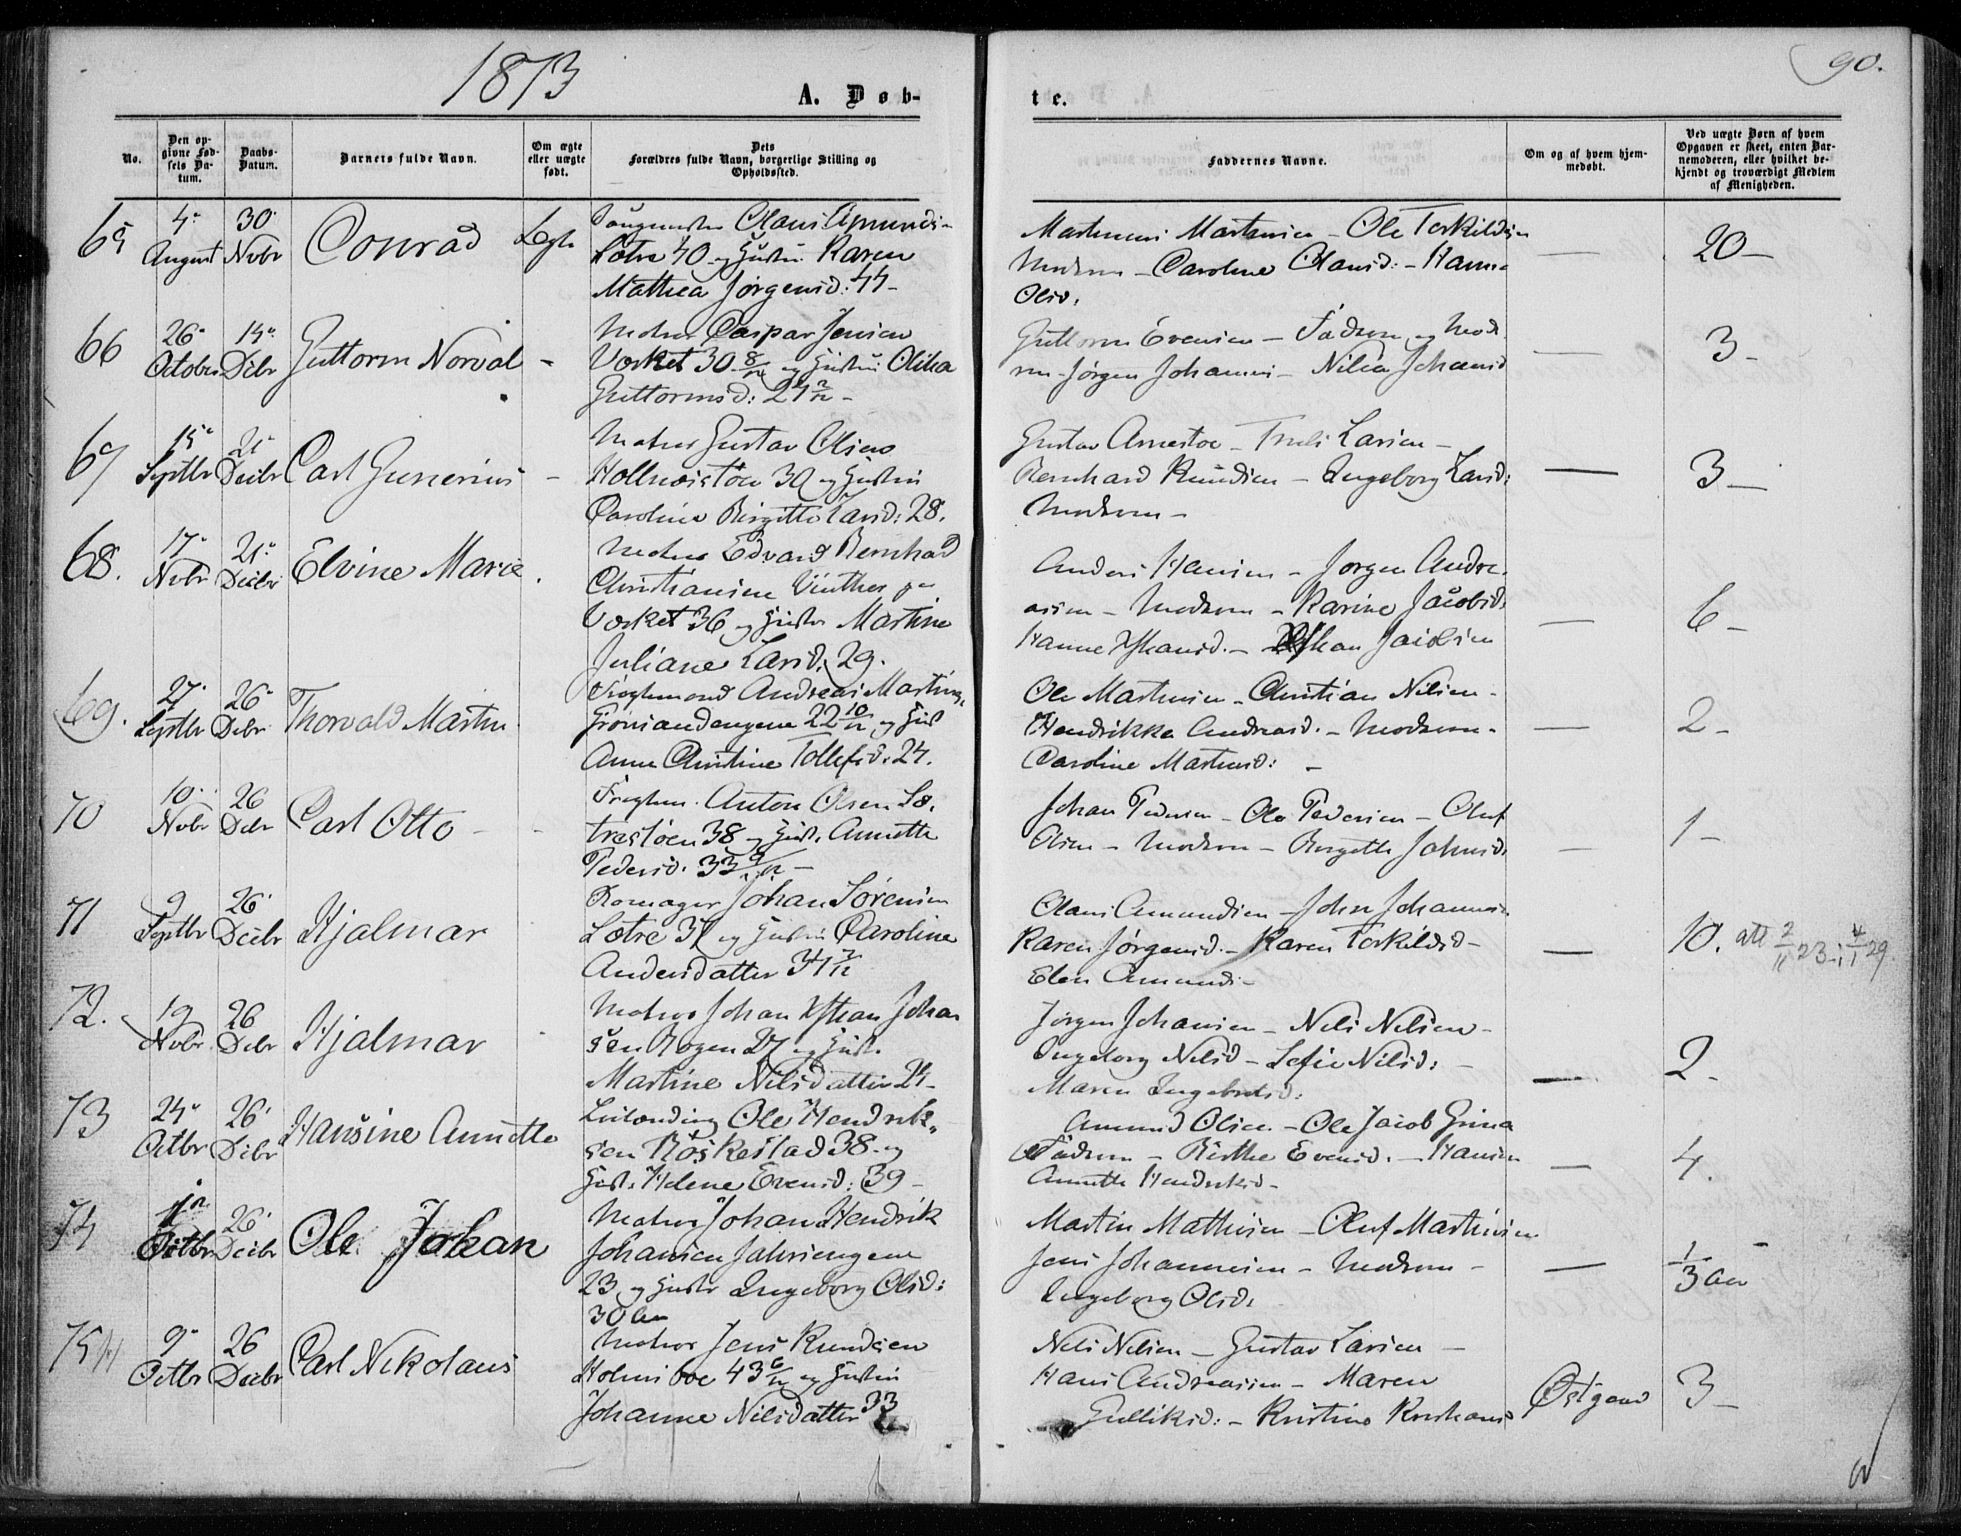 1873
90.
A. Døb-
te.
No.
Den op-
givne Fød-
sels Da-
tum.
Daabs-
Datum.
Barnets fulde Navn.
Om ægte
eller uægte
født.
Dets
Forældres fulde Navn, borgerlige Stilling og
Opholdssted.
Faddernes Navne.
Om og af hvem hjem-
medøbt.
Ved uægte Børn af hvem
Opgaven er skeet, enten Bar-
nemoderen, eller hvilket be-
kjendt og troværdigt Medlem
af Menigheden.
65
4
August
30
Novbr
Conrad
Ægte
Olaus Amunds
Lotre 40 og Hustru Karen
Mathea Jørgensd. 44
Martinius Martinsen - Ole Torkildsen
Moderen - Caroline Olausd: - Hanna
Olsd.
20 -
66
26
October
14
Debr
Guttorm Norval
-
Matros Caspar Jensen
Værket 30 8/12 og Hustru Olika
Guttormsd: 24 2/12 -
Guttorm Evensen - Faderen og Mode
ren - Jørgen Johannes - Johansd
3 -
67
15
Septbr
21
Decbr
Carl Gunerius
-
Matros Gustav Olsen
30 og Hustru
Caroline Birgitte Larsd: 28.
Gustav - Truls Larsen -
Bernhard Knudsen - Ingeborg Larsd:
Moderen -
3 -
68.
17
Nvbr
21
Decbr
Elvine Marie
Matros Edvard Bernhard
Christiansen Vinther
Værket 36 og Hustru Martine
Juliane Larsd. 29.
Anders Hansen - Jørgen Andre
assen - Moderen - Karine Jacobsd.
Hanne - Jacobsen
6 -
69.
27
Septbr
26
Debr
Thorvald Martin
Andreas Martins.
22 10/12 og Hust
Anne Christine Tollefsd. 24.
Ole Martinsen - Christian Nilsen -
Hendrikke Andreasd. - Moderen -
Caroline Martinsd: -
2 -
70
10
Nvbr
26
Debr
Carl Otto -
Anton Olsen Sæ.
trestøen 38 og Hust. Annette
Pedersd. 33 9/12 -
Johan Pedersen - Ole Pedersen - Oluf
Olsen - Moderen - Birgitte Johnsd.
1 -
71
9
Septbr
26
Decbr
Hjalmar
Johan Sørensen
Lotre 37 og Hustru Caroline
Andersdatter 34 7/12
Olaus Amundsen - John Johannesen
Karen Jørgensd. - Karen Torkildsd -
Elen Amunds -
10. att 2/11 23 - i 4/1 29.
72.
19
Nvbr
26
Debr
Hjalmar
Matros Johan Johan
sen 27 og Hust.
Martine Nilsdatter 24 -
Jørgen Johansen - Nils Nilsen -
Ingeborg Nilsd - Sofie Nilsd:
Maren Ingebretsd:
2 -
73
24
Octbr
26
Debr
Hansine Annette
Leilænding Ole Hendrik-
sen Røskestad 38 og
Hust. Helene Evensd: 39 -
Amund Olsen - Ole Jacob
Faderen - Birthe Evensd. - Hansen
Annette Hendriksd -
4.
74
Octbr
26
Decbr
Ole Johan
Matros Johan Hendrik
Johansen Jahrsengene
23 og Hustr Ingeborg Olsd:
30 Aar
Martin Mathisen - Oluf Martinsen
Jens Johannesen - Moderen -
Ingeborg Olsd.
1/3 Aar
75
9
Octbr
26
Decbr
Carl Nikolaus
Matros Jens Knudsen
43 6/12 og Hustru
Johanne Nilsdatter 33
Nils Nilsen - Gustav Larsen -
Hans Andreassen - Maren
Gulliksd: - Kristine
Østgaard
3 -